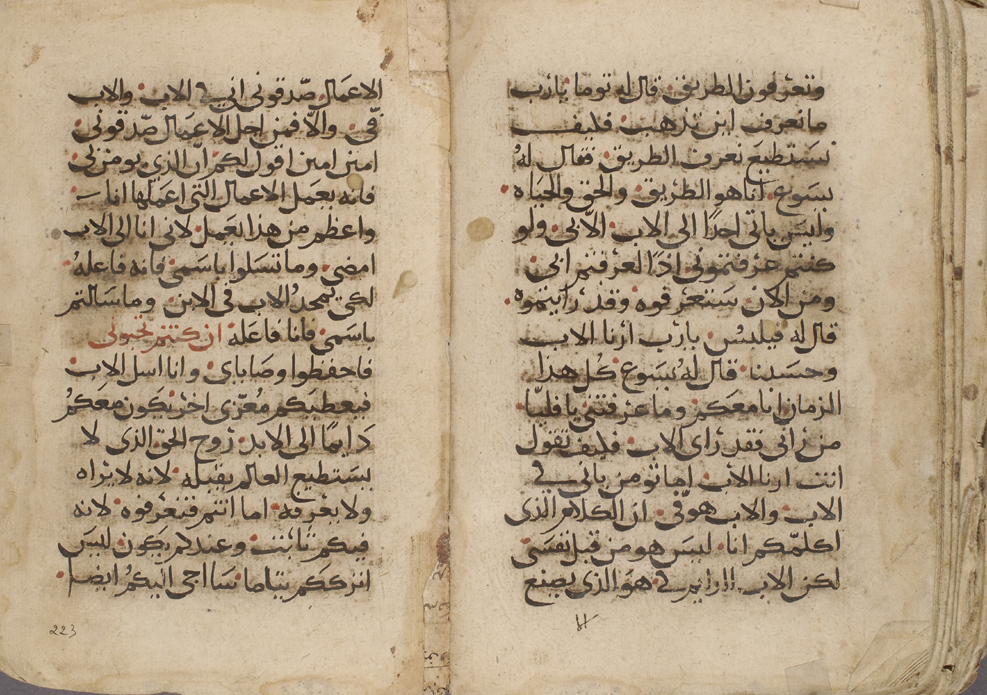 وتعرفون الطريق. قال له توما يارب
ما نعرف اين تذهب. فكيف
نستطيع نعرف الطريق. فقال له
يسوع. انا هو الطريق. والحق والحياه.
وليس ياتي احدًا الى الاب. الّا بي. ولو
كنتم عرفتموني اذًا لعرفتم ابي.
ومن الان ستعرفوه وقد رايتموه.
قال له فيلبس. يارب ارنا الاب
وحسبنا. قال له يسوع كل هذا
الزمان انا معكم. وما عرفتني يا فلبّا.
من رأني فقد راى الاب. فكيف تقول
انت ارنا الاب. اما تومن باني في
الاب. والاب هو فّي. ان الكلام الذى
اكلمّكم انا. ليس هو من قبل نفسى
لكن الاب فيّ هو الذي يصنع
الاعمال. صّدقوني اني في الاب. والاب
فّي. والّا فمن اجل الاعمال صّدقوني.
امين امين اقول لكم انّ الذي يومن بي.
فانه يعمل الاعمال التي اعملها انا.
واعظم من هذا يعمل. لاني انا الى الاب
امضي. وما تسلوا باسمى فانه فاعله.
لكى يمجد الاب في الابن. وما سالتم
باسمى فانا فاعله. ان كنتم تحبوني
فاحفظوا وصاياي. وانا اسل الاب.
فيعطيكم مُعزّي اخر يكون معكم
دايمًا الى الابد. روح الحق الذى لا
يستطيع العالم يقبله. لانه لا يراه
ولا يعرفه. اما انتم فتعرفوه. لانه
فيكم ثابت. وعندكم يكون ليس
اترككم يتاما. سا اجى اليكم ايضا.
223